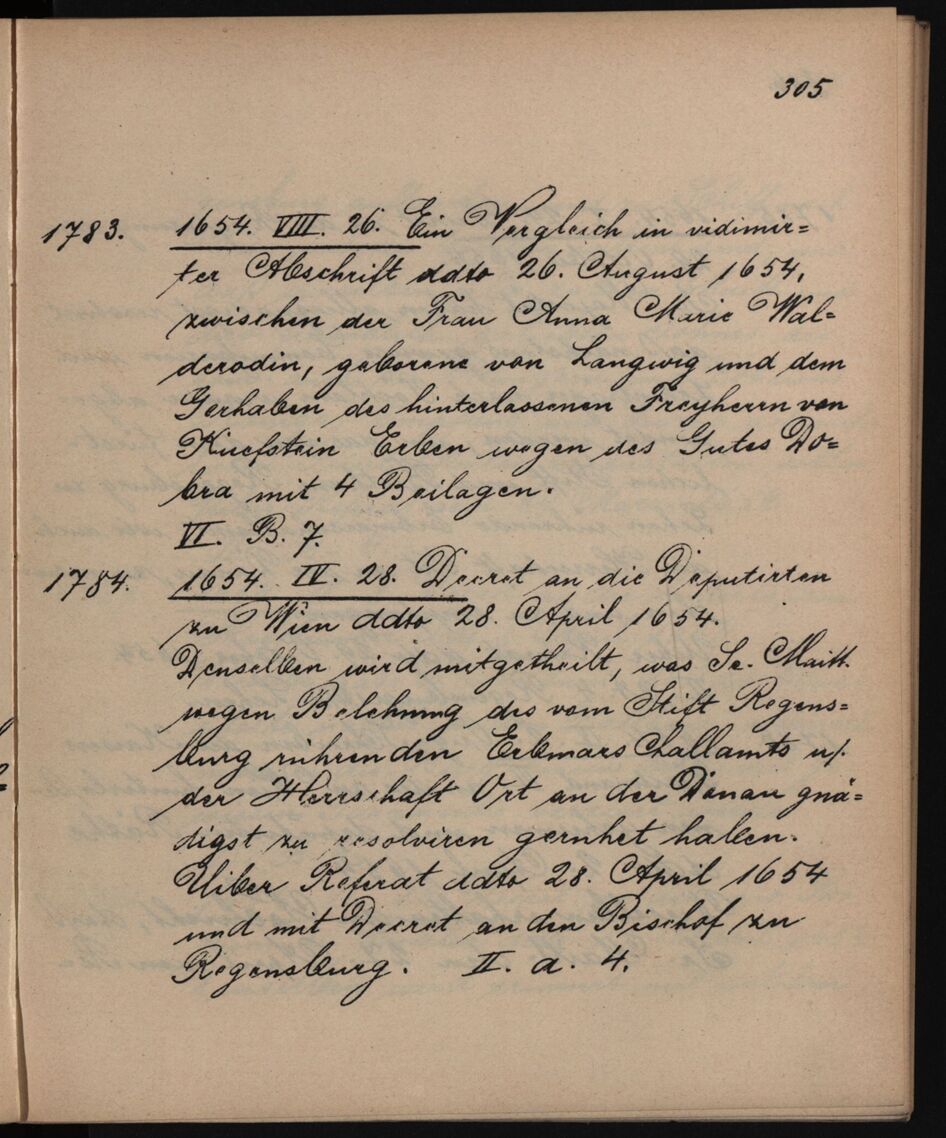 305
1783. 1654. VIII. 26. Ein Vergleich in vidimir=
ter Abschrift ddto 26. August 1654,
zwischen der Frau Anna Marie Wal=
derodin, geborene von Langwig und dem
Gerhaben des hinterlassenen Freyherrn von
Kuefstein Erben wegen des Gutes Do=
bra mit 4 Beilagen.
VI. B. 7.
1784. 1654. IV. 28. Decret an die Deputirten
zu Wien ddto 28. April 1654.
Denselben wird mitgetheilt, was Se. Maitt.
wegen Belehnung des vom Stift Regens=
burg rührenden Erbmarschallamts u/.
der Herrschaft Ort an der Donau gnä=
digst zu resolviren geruhet haben.
Uiber Referat ddto 28. April 1654
und mit Decret an den Bischof zu
Regensburg. II. a. 4.